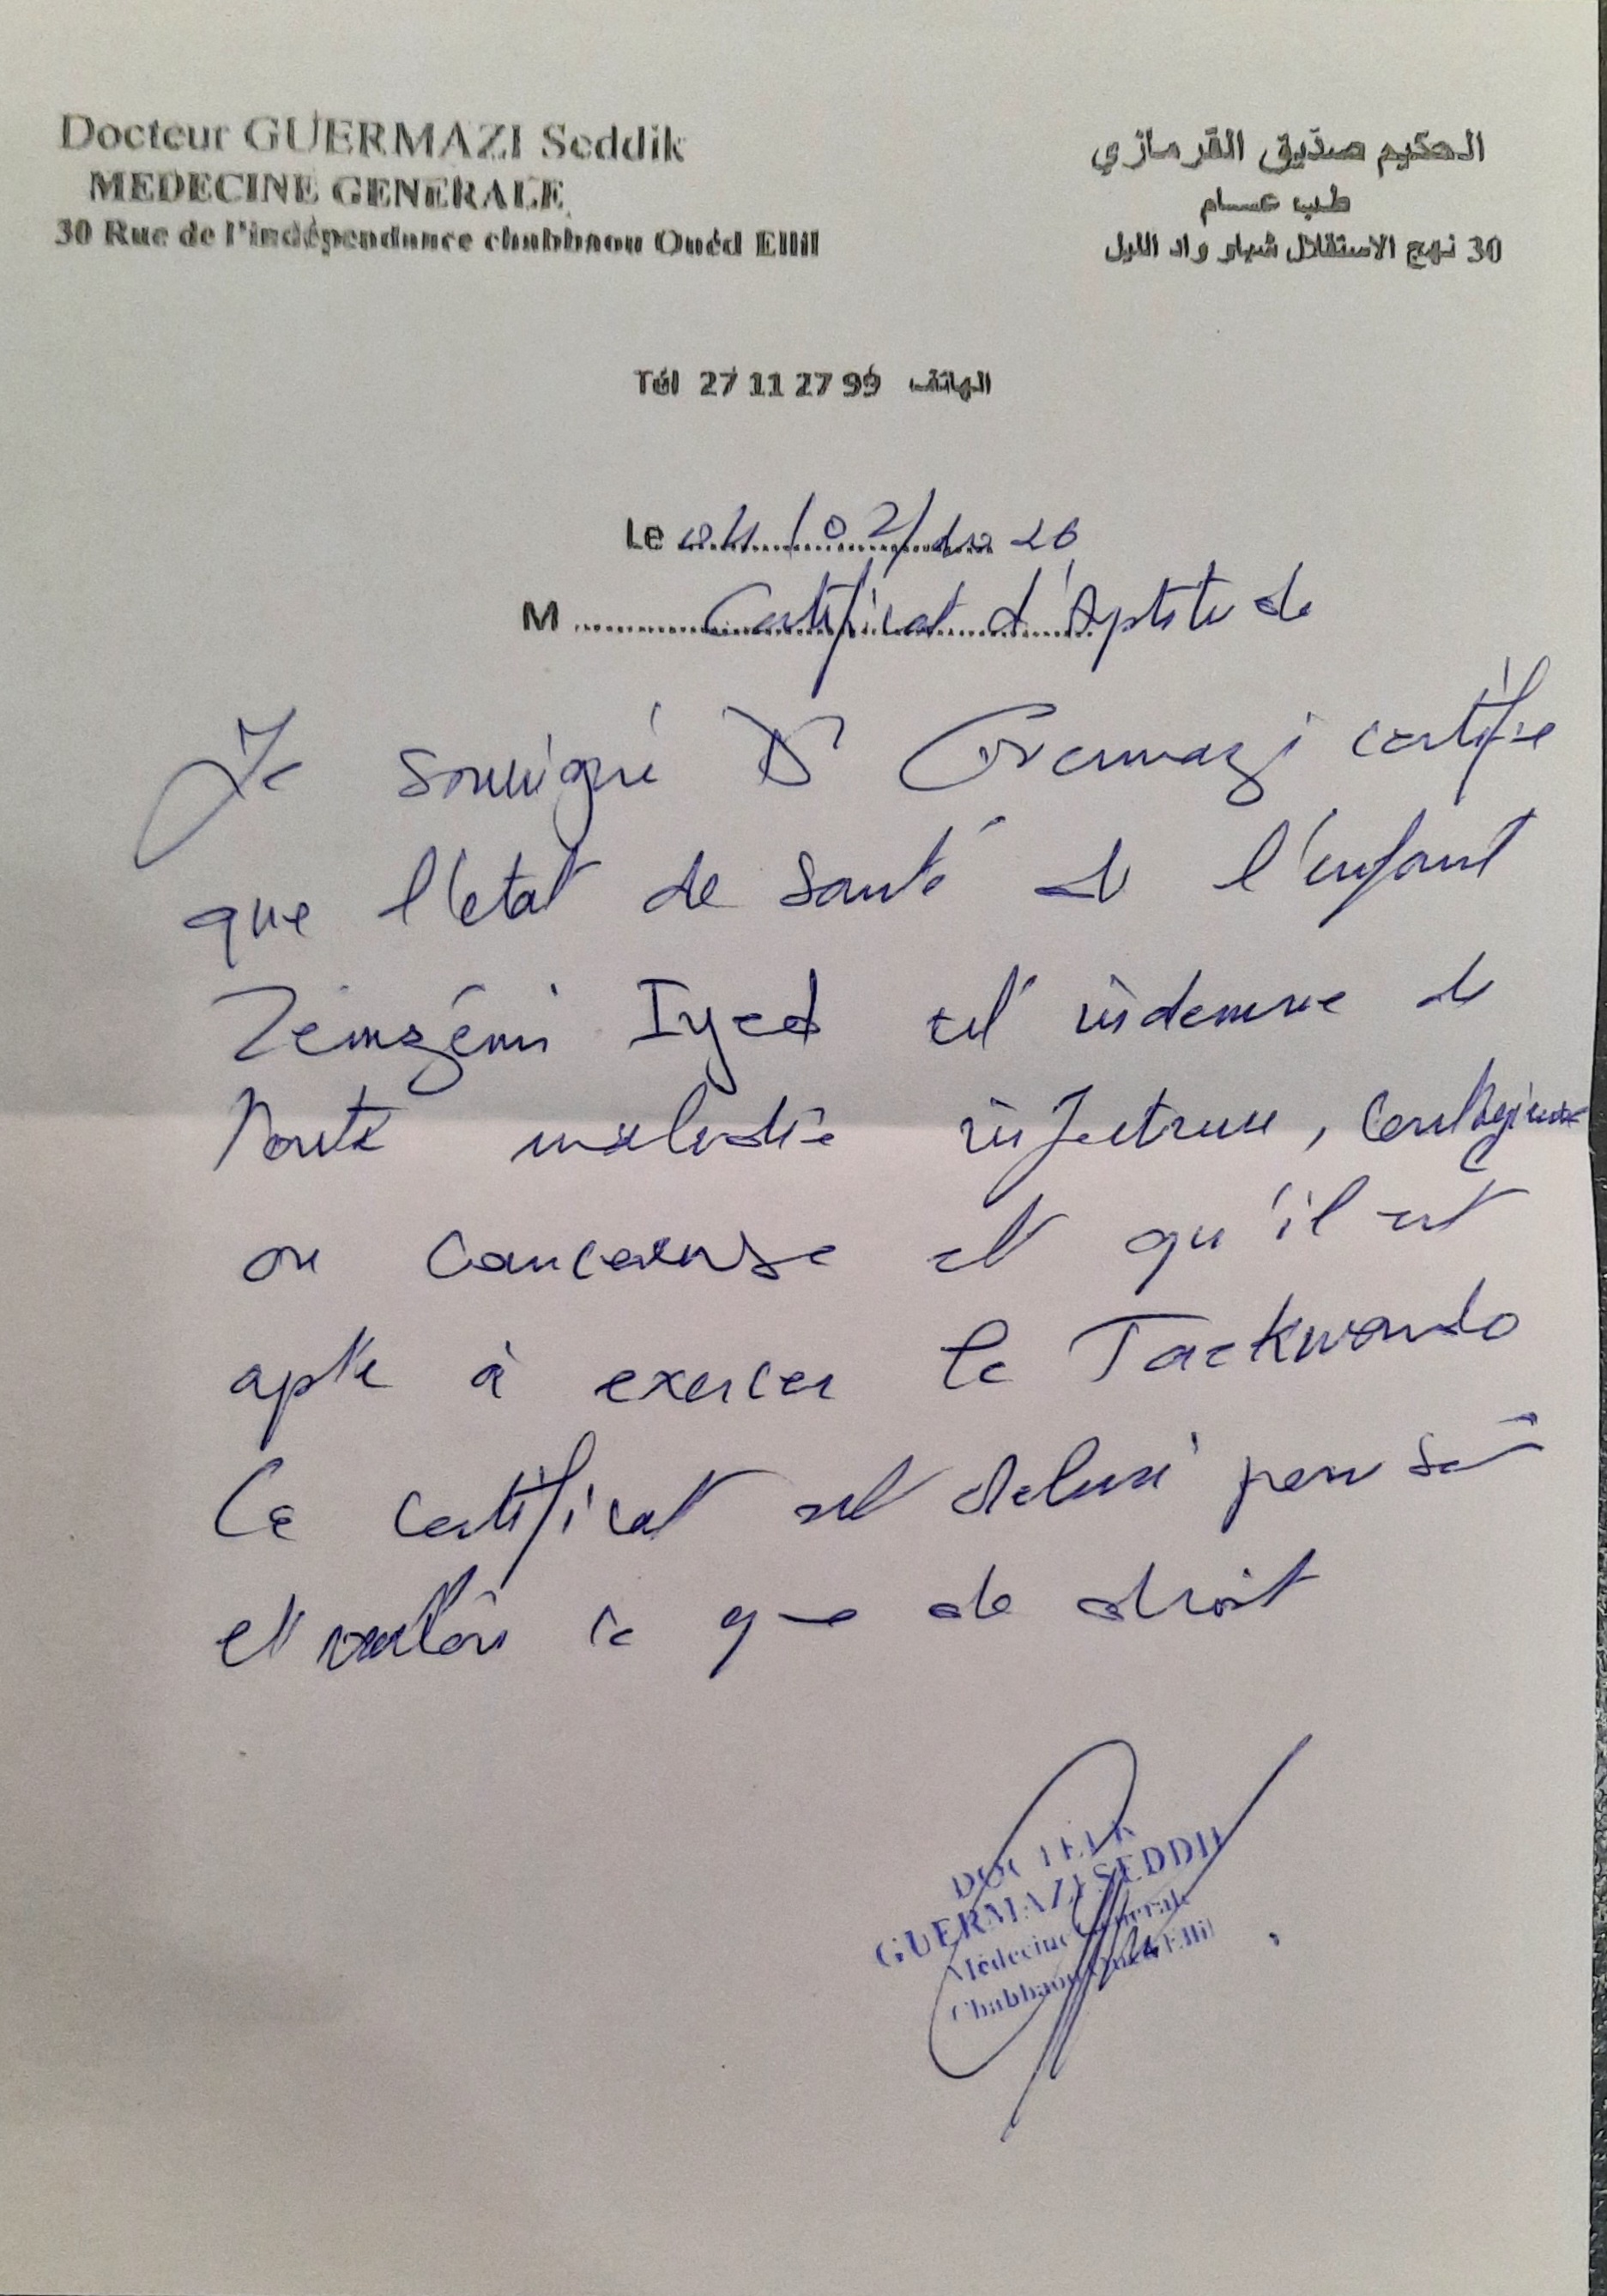 Docteur GUERMAZI Seddik
MEDECINE GENERALE
30 Rue de l'indépendance chabbaou Ouéd Ellil
الحكيم صديق القرمازي
طب عام
30 نهج الاستقلال شباو واد الليل
Tél 27 11 27 99 الهاتف
Le 04/02/2026
M Certificat d'Aptitude
Je soussigné Dr Guermazi certifie
que l'état de santé de l'enfant
Zemzémi Iyed est indemne de
toute maladie infectieuse, contagieuse
ou cancereuse et qu'il est
apte à exercer le Taekwondo
Ce certificat est delivré pour servir
et valoir ce que de droit
DOCTEUR
GUERMAZI SEDDIK
Médecine Générale
Chabbaou Oued Ellil